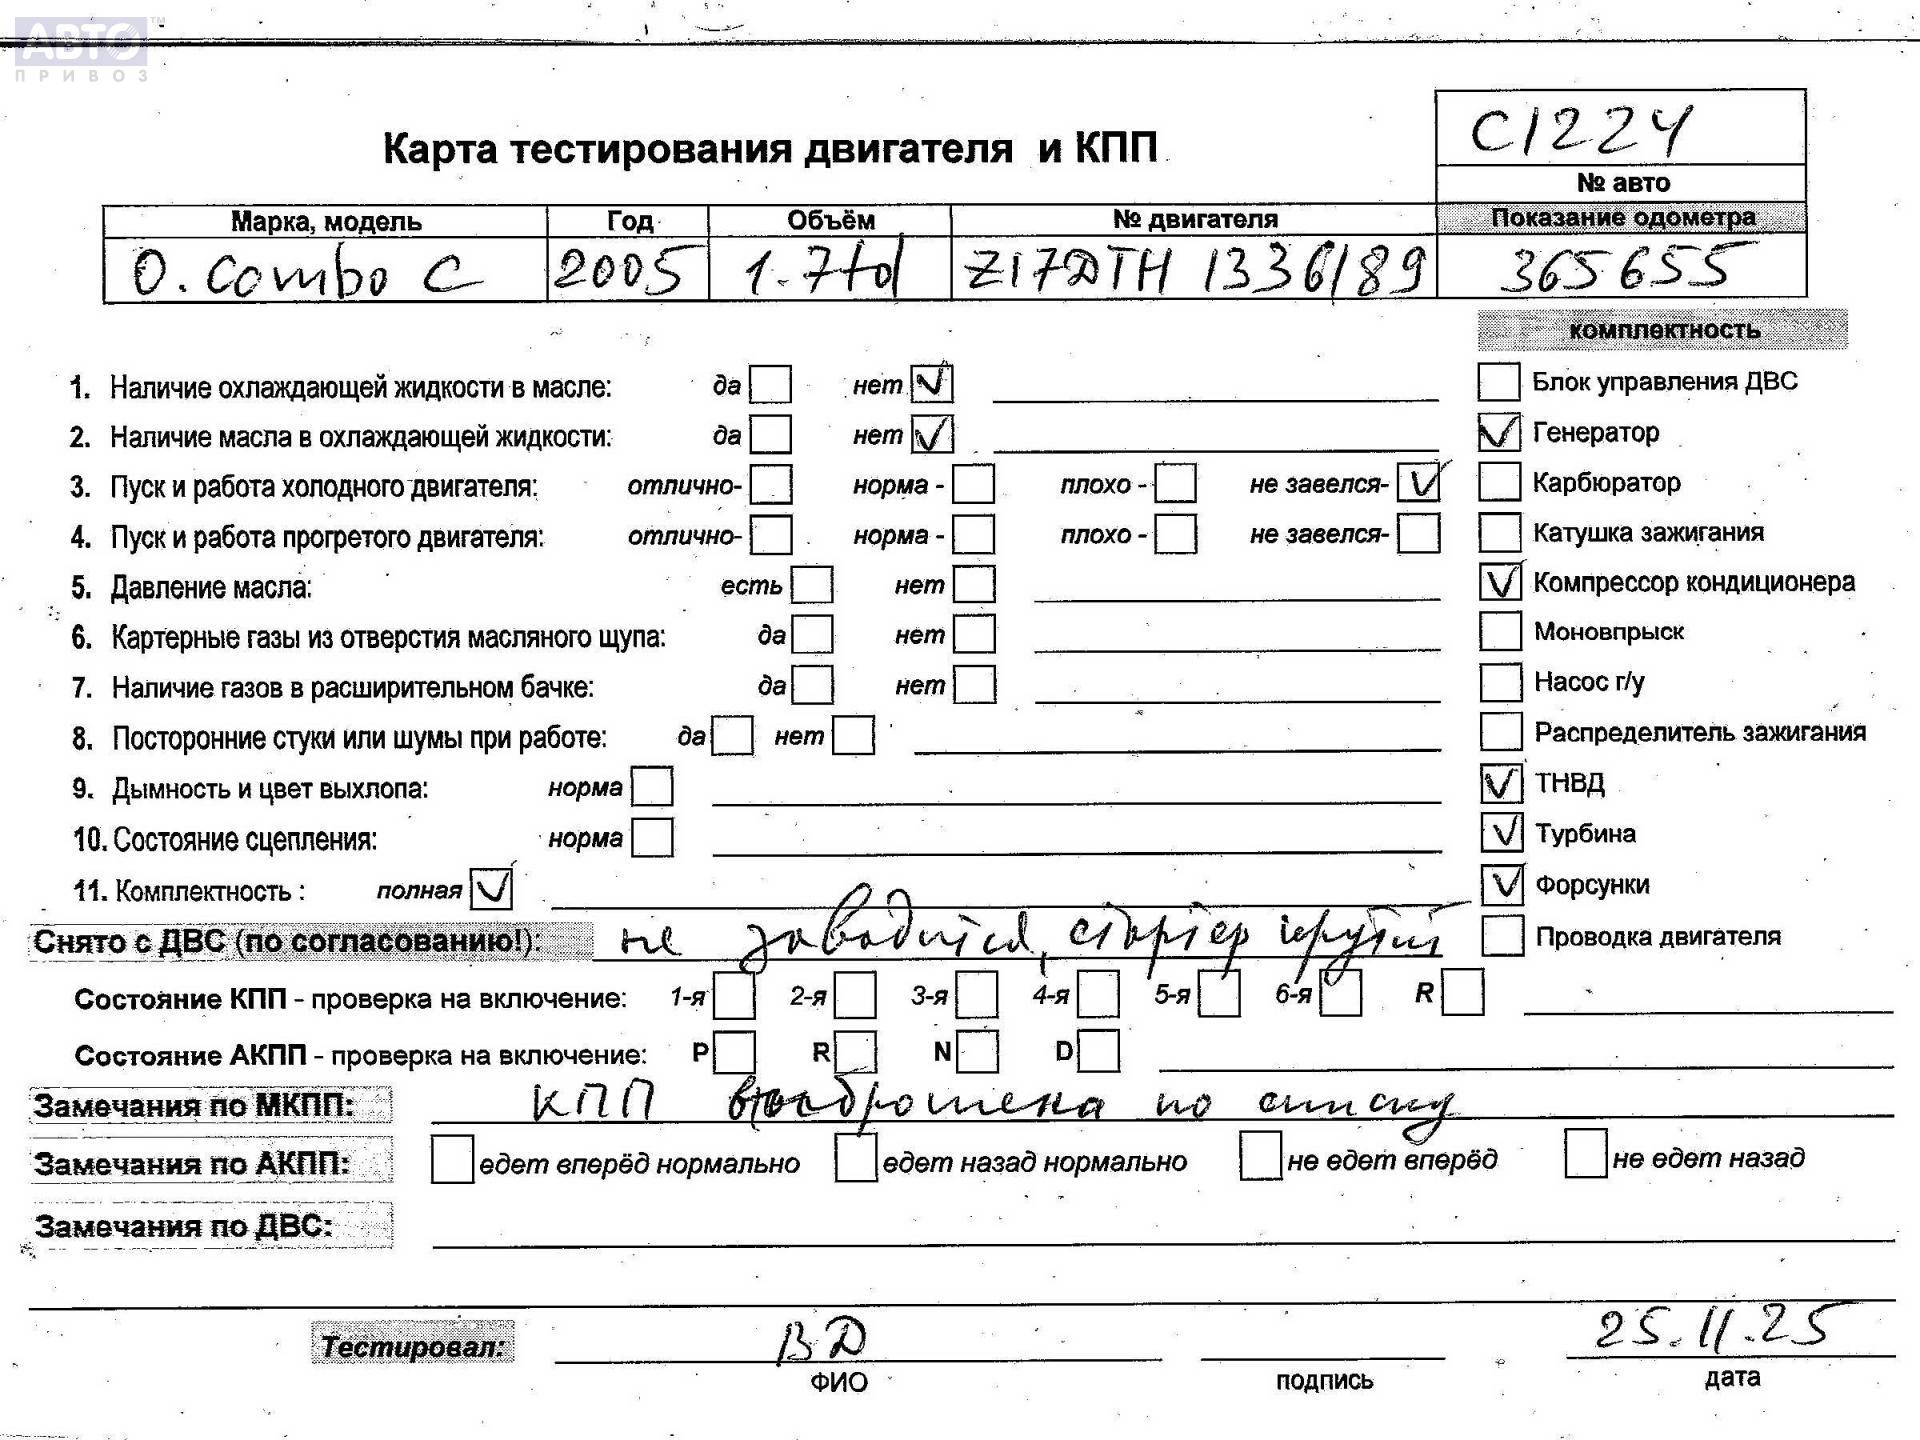 АВТО™
ПРИВОЗ
C1224
Карта тестирования двигателя и КПП
№ авто
Марка, модель Год Объём № двигателя Показание одометра
O. Combo C 2005 1.7td Z17DTH 1336189 365655
комплектность
1. Наличие охлаждающей жидкости в масле: да нет √ Блок управления ДВС
2. Наличие масла в охлаждающей жидкости: да нет √ √ Генератор
3. Пуск и работа холодного двигателя: отлично- норма - плохо - не завелся- √ Карбюратор
4. Пуск и работа прогретого двигателя: отлично- норма - плохо - не завелся- Катушка зажигания
5. Давление масла: есть нет √ Компрессор кондиционера
6. Картерные газы из отверстия масляного щупа: да нет Моновпрыск
7. Наличие газов в расширительном бачке: да нет Насос г/у
8. Посторонние стуки или шумы при работе: да нет Распределитель зажигания
9. Дымность и цвет выхлопа: норма √ ТНВД
10. Состояние сцепления: норма √ Турбина
11. Комплектность : полная √ √ Форсунки
Снято с ДВС (по согласованию!): не заводится, стартер крутит Проводка двигателя
Состояние КПП - проверка на включение: 1-я 2-я 3-я 4-я 5-я 6-я R
Состояние АКПП - проверка на включение: P R N D
Замечания по МКПП: КПП по списку
Замечания по АКПП: едет вперёд нормально едет назад нормально не едет вперёд не едет назад
Замечания по ДВС:
Тестировал: ВД 25.11.25
ФИО подпись дата